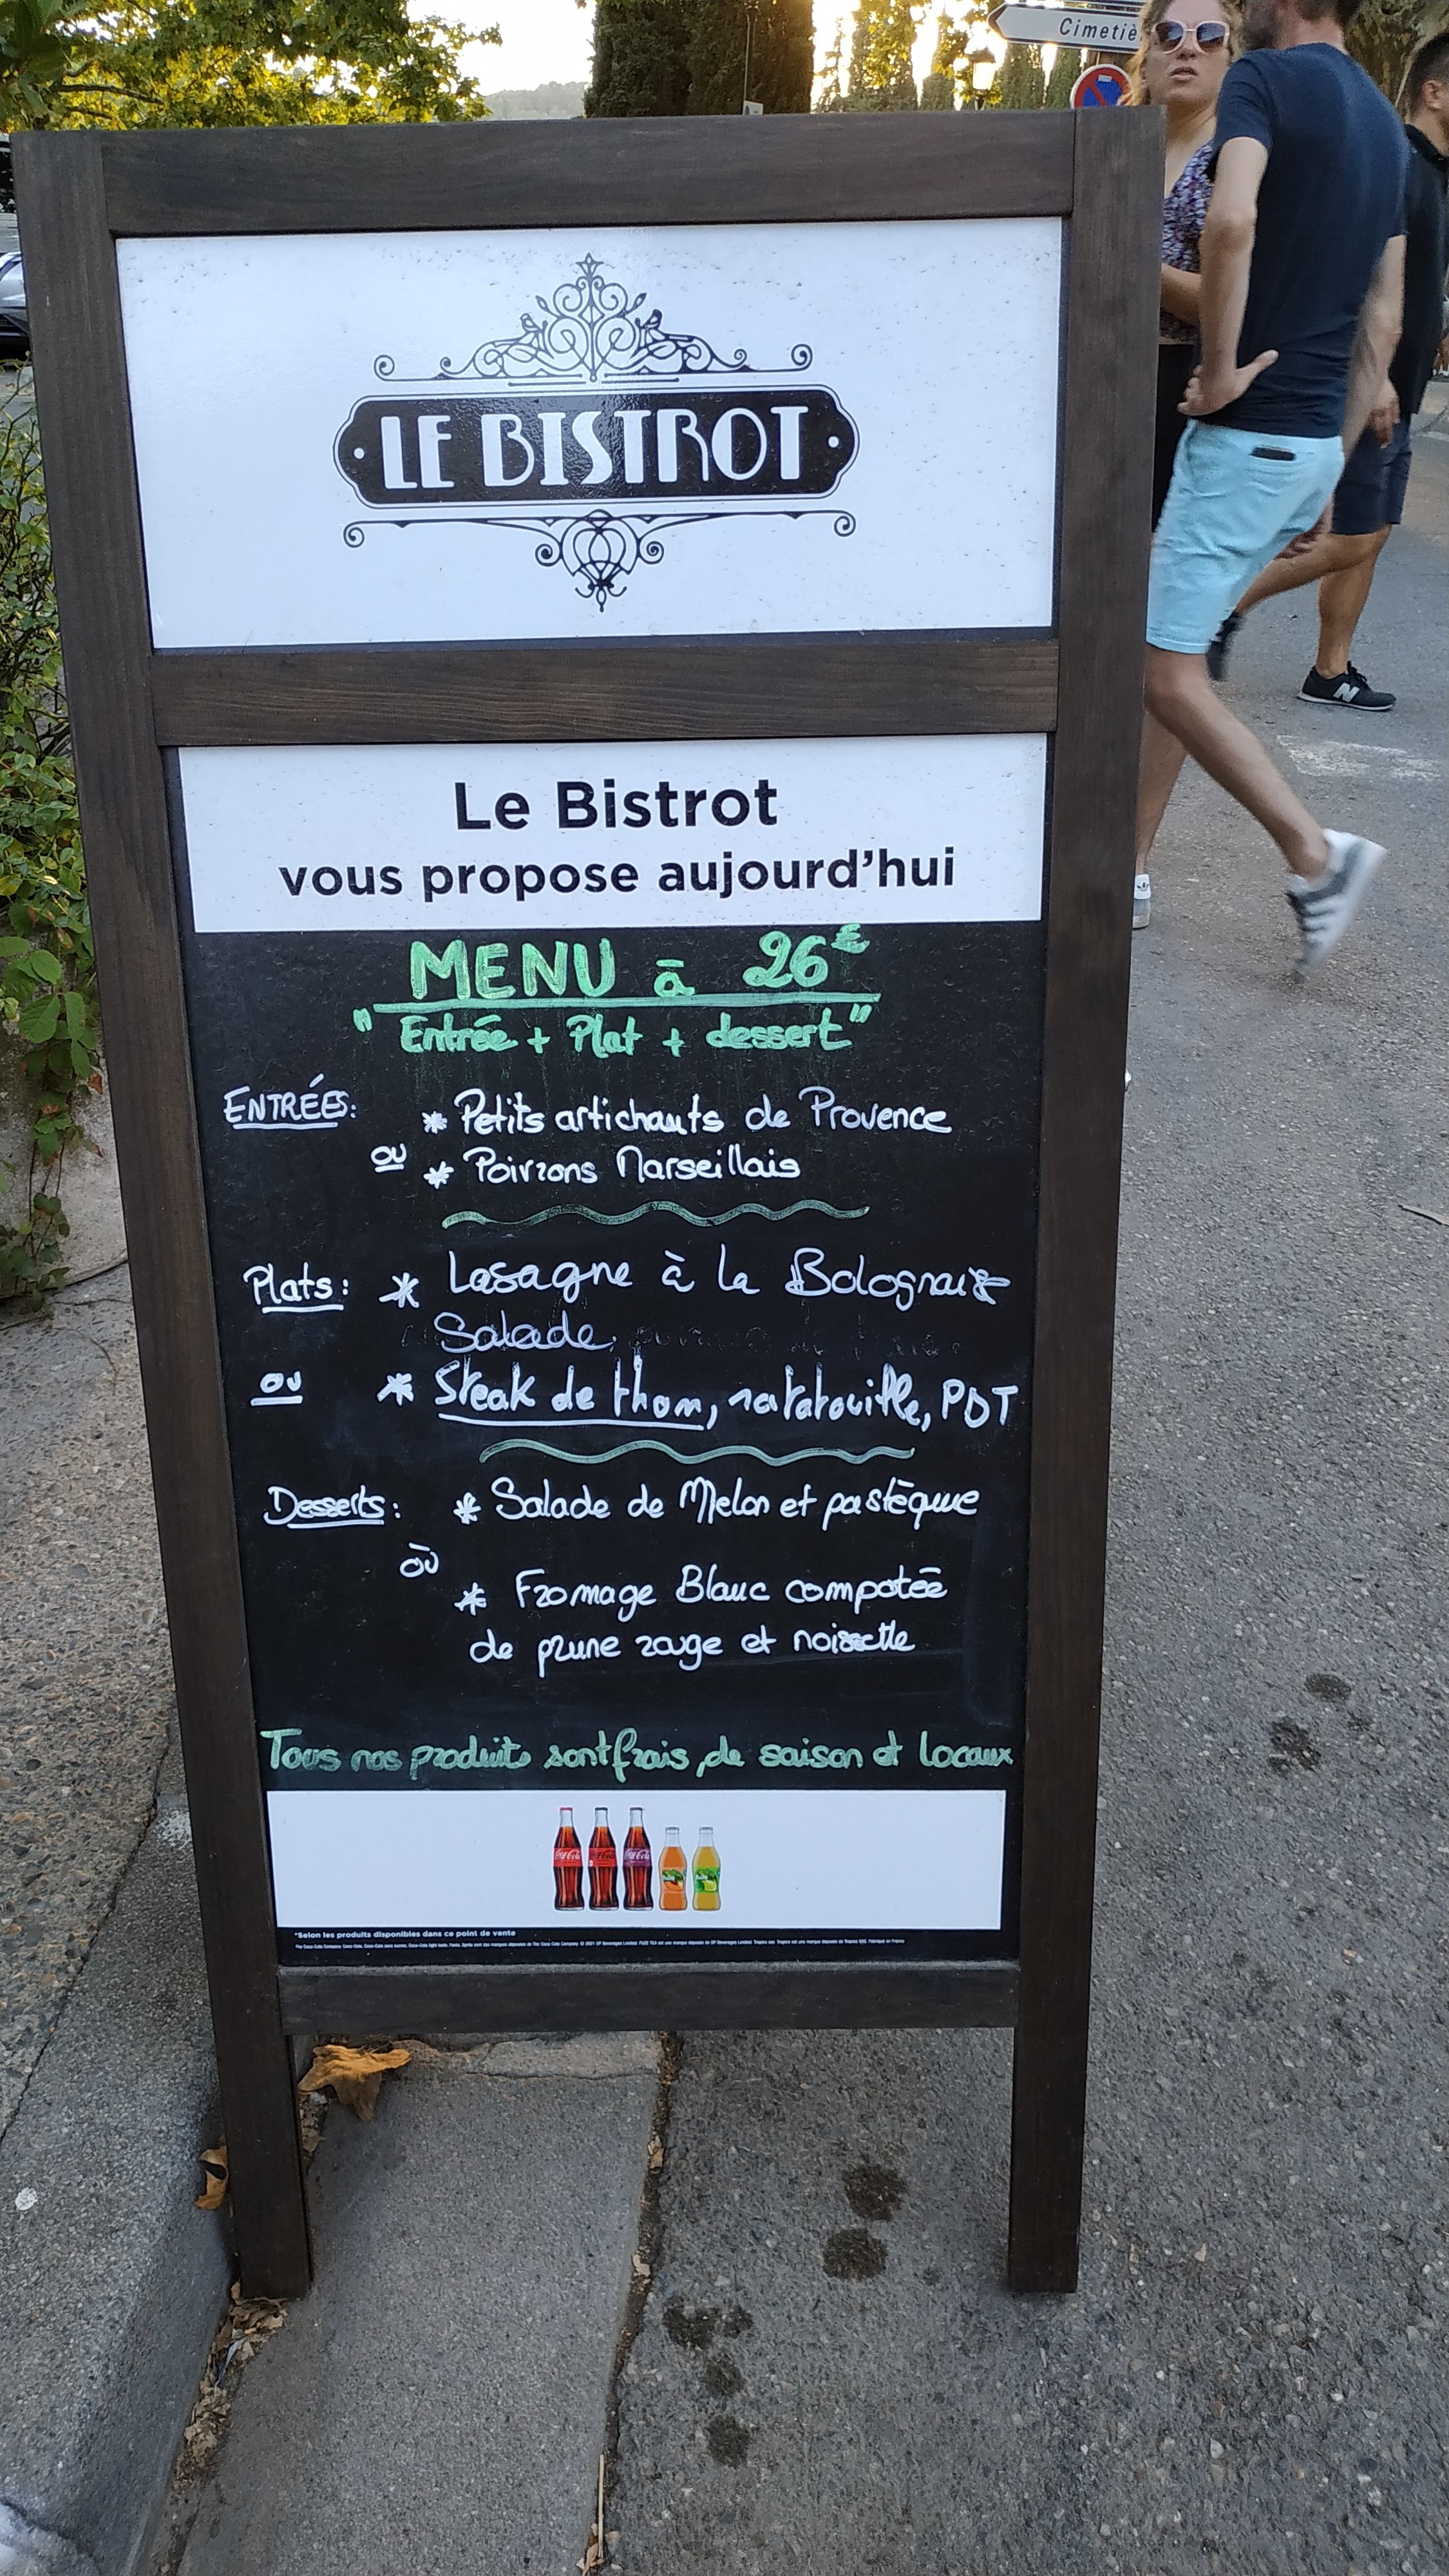 Cimetiè
LE BISTROT
Le Bistrot
vous propose aujourd'hui
MENU à 26€
"Entrée + Plat + dessert"
ENTRÉES: * Petits artichauts de Provence
ou * Poivrons Marseillais
Plats: * Lasagne à la Bolognaise
Salade.
ou * Steak de thon, ratatouille, PDT
Desserts: * Salade de Melon et pastèque
où
* Fromage Blanc compotée
de prune rouge et noisette
Tous nos produits sont frais, de saison et locaux
Coca-Cola Coca-Cola Coca-Cola
*Selon les produits disponibles dans ce point de vente